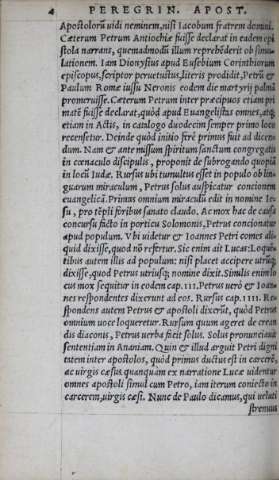 4 PEREGRIN. APOST.
Apostolorū uidi neminem, nisi Iacobum fratrem domini.
Cæterum Petrum Antiochiæ fuisse declarat in eadem epi
stola narrans, quemadmodū illum reprehēderit ob simu-
lationem. Iam Dionysius apud Eusebium Corinthiorum
episcopus, scriptor peruetustus, literis prodidit, Petrū &
Paulum Romæ iussu Neronis eodem die martyrij palmā
promeruisse. Cæterum Petrum inter præcipuos etiam pri
matē fuisse declarat, quòd apud Euangelistas omnes, atq;
etiam in Actis, in catalogo duodecim semper primo loco
recensetur. Deinde quòd initio ferè primus fuit ad dicen-
dum. Nam & ante missum spiritum sanctum congregatis
in cœnaculo discipulis, proponit de subrogando quopiā
in locū Iudæ. Rursus ubi tumultus esset in populo ob lin-
guarum miraculum, Petrus solus auspicatur concionem
euangelicā. Primus omnium miraculū edit in nomine Ie-
su, pro tēpli foribus sanato claudo. Ac mox hac de causa
concursu facto in porticu Solomonis, Petrus concionatur
apud populum. Vbi uidetur & Ioannes Petri comes ali-
quid dixisse, quod nō refertur. Sic enim ait Lucas: Loquē-
tibus autem illis ad populum: nisi placet accipere utrūq;
dixisse, quod Petrus utriusq; nomine dixit. Similis enim lo
cus mox sequitur in eodem cap. III. Petrus uerò & Ioan-
nes respondentes dixerunt ad eos. Rursus cap. IIII. Re-
spondens autem Petrus & apostoli dixerūt, quòd Petrus
omnium uoce loqueretur. Rursum quum ageret de crean
dis diaconis, Petrus uerba facit solus. Solus pronunciauit
sententiam in Ananiam. Quin & illud arguit Petri digni
tatem inter apostolos, quòd primus ductus est in carcerē,
ac uirgis cæsus quanquàm ex narratione Lucæ uidentur
omnes apostoli simul cum Petro, iam iterum coniecto in
carcerem, uirgis cæsi. Nunc de Paulo dicamus, qui ueluti
strenuus